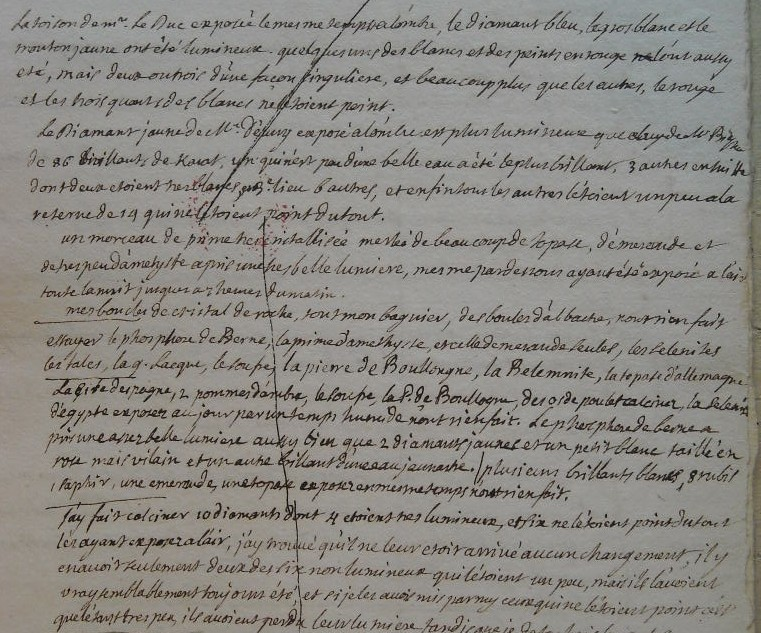 la toison de mr. Le Duc exposée le mesme temps a lombre, le diamant bleu, le gros blanc et le
mouton jaune ont été lumineux. quelques uns des blancs et des peints en rouge lont aussy
eté, mais deux ou trois d'une façon singuliere, et beaucoup plus que les autres, le rouge
et les trois quarts des blancs ne letoient point.
Le Diamant jaune de Mr. exposé a lombre est plus lumineux que de Mr
de 86 brillants de Karat, un qui n'est pas d'une belle eau a été le plus brillant. 3 autres ensuitte
dont deux etoient tres blancs, en 3e. lieu 6 autres, et enfin tous les autres létoient un peu a la
reserve de 14 qui ne letoient point du tout.
un morceau de prime tres cristallisée meslée de beaucoup de topase, d'émeraude et
de tres peu d'ametyste a pris une tres belle lumiere, mesme par dessous ayant été exposé a lair
toute la nuit jusques a 7 heures du matin.
mes boucles de cristal de roche, tout mon baguier, des boules d'albatre, nont rien fait
essayer le phosphore de Berne, la prime d'amethyste, et celle d'emeraude seules, les selenites
les talcs, la g. Lacque, le soufre, la pierre de Boullongne, la Belemnite, la topase d'allemagne
La d'espagne, 2 pommes d'ambre, le soufre, la P. de Boullogne, des os de poulet calcinez, la selenite
d'égypte exposez au jour par un temps humide n'ont rien fait. Le phosphore de berne a
pris une assez belle lumiere aussy bien que 2 diamants jaunes et un petit blanc taillé en
rose mais vilain et un autre brillant d'une eau jaunastre. plusieurs brillants blancs, 8 rubis
1 saphir, une emeraude, une topase exposez en mesme temps nont rien fait.
J'ay fait calciner 10 diamants dont 4 etoient tres lumineux, et six ne létoient point du tout
les ayant exposez a lair, j'ay trouvé qu'il ne leur etoit arrivé aucun changement, il y
en avoit seulement deux des six non lumineux qui létoient un peu, mais ils lavoient
vraysemblablement toujours eté, et si je les avois mis parmy ceux qui ne létoient point c'est
que létant tres peu, ils avoient perdu leur lumiere tandis que je